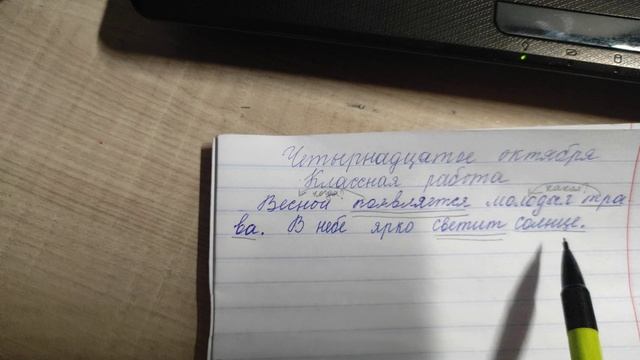 Четырнадцатое октября
Классная работа
когда? какая?
Весной появляется молодая тра-
ва. В небе ярко светит солнце.